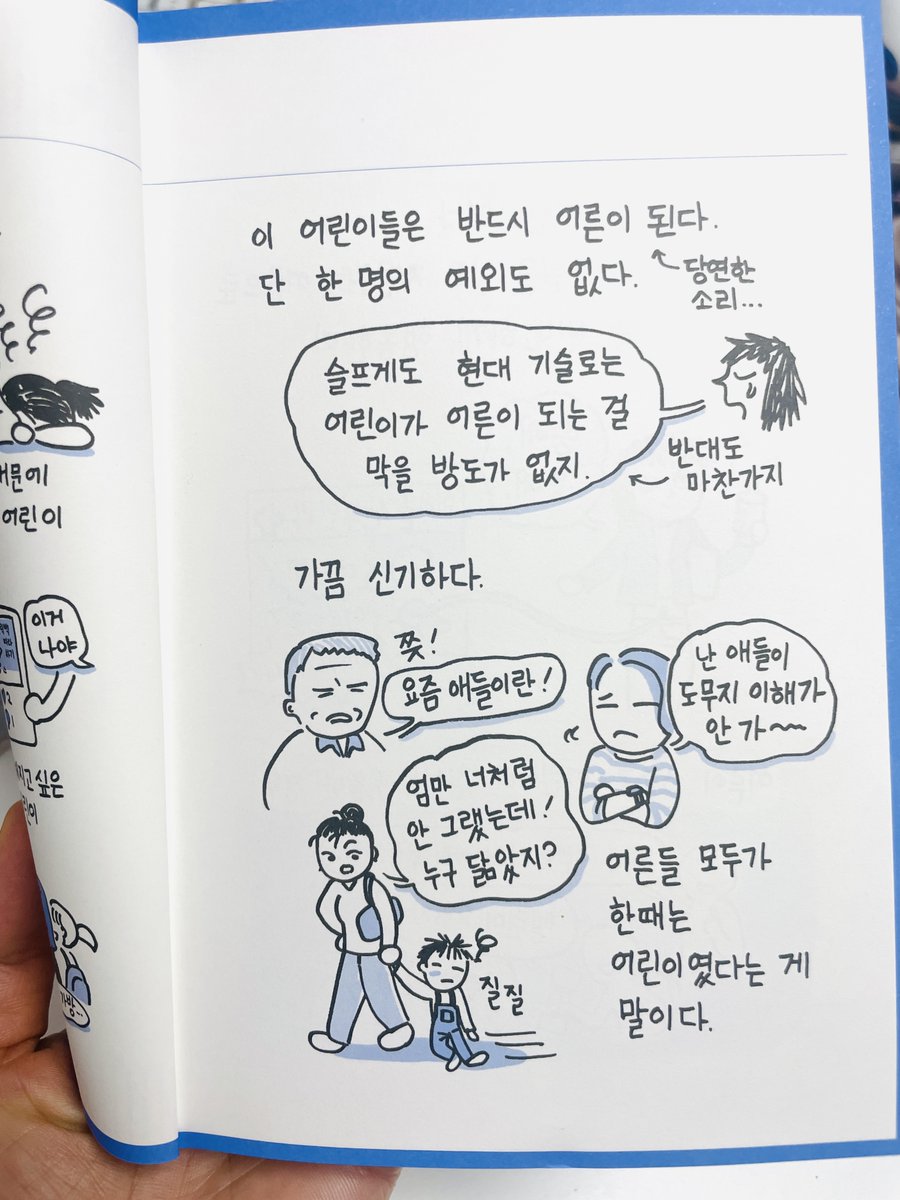 때문에
어린이
이거
나야
지고 싶은
이 어린이들은 반드시 어른이 된다.
단 한 명의 예외도 없다.
당연한
소리...
슬프게도 현대 기술로는
어린이가 어른이 되는 걸
막을 방도가 없지.
반대도
마찬가지
가끔 신기하다.
쯧!
요즘 애들이란!
난 애들이
도무지 이해가
안 가~
엄만 너처럼
안 그랬는데!
누구 닮았지?
질질
어른들 모두가
한때는
어린이였다는 게
말이다.